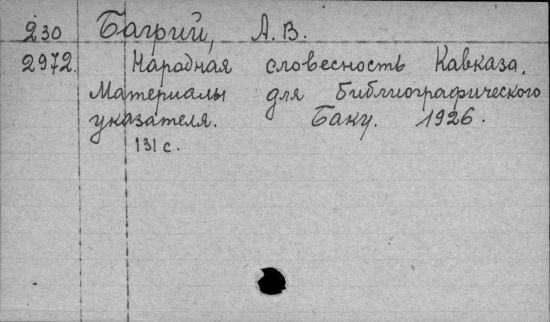 230 Багрий, А. В.
2972. Народная словесность Кавказа.
Материалы для библиографического
указателя. Баку. 1926.
131 с.